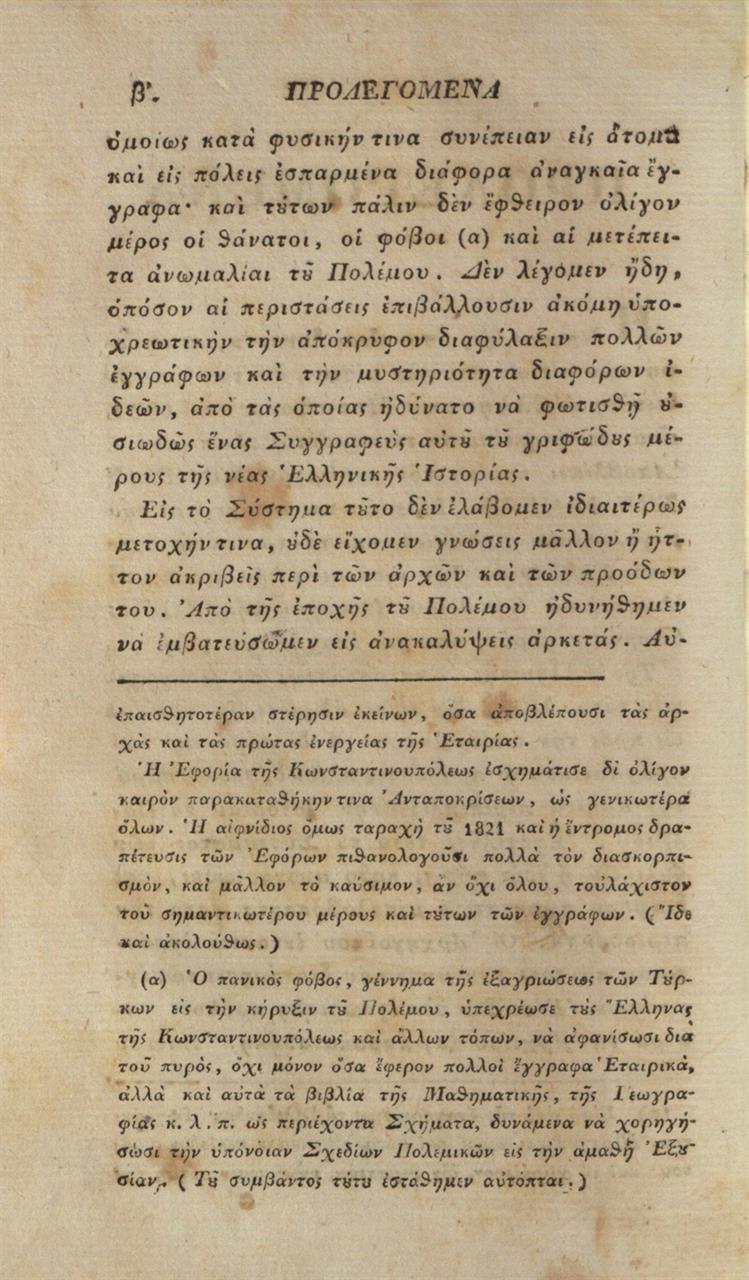 β'. ΠΡΟΛΕΓΟΜΕΝΑ
ὁμοίως κατὰ φυσικήν τινα συνέπειαν εἰς ἄτομα
καὶ εἰς πόλεις ἐσπαρμένα διάφορα ἀναγκαῖα ἔγ-
γραφα· καὶ τȣ́των πάλιν δὲν ἔφθειρον ὀλίγον
μέρος οἱ θάνατοι, οἱ φόβοι (α) καὶ αἱ μετέπει-
τα ἀνωμαλίαι τȣ͂ Πολέμου. Δὲν λέγομεν ἤδη,
ὁπόσον αἱ περιστάσεις ἐπιβάλλουσιν ἀκόμη ὑπο-
χρεωτικὴν τὴν ἀπόκρυφον διαφύλαξιν πολλῶν
ἐγγράφων καὶ τὴν μυστηριότητα διαφόρων ἰ-
δεῶν, ἀπὸ τὰς ὁποίας ἠδύνατο νὰ φωτισθῇ ȣ̓-
σιωδῶς ἕνας Συγγραφεὺς αὐτȣ͂ τȣ͂ γριφώδȣς μέ-
ρους τῆς νέας Ἑλληνικῆς Ἱστορίας.
Εἰς τὸ Σύστημα τȣ͂το δὲν ἐλάβομεν ἰδιαιτέρως
μετοχήν τινα, ȣ̓δὲ εἴχομεν γνώσεις μᾶλλον ἢ ἧτ-
τον ἀκριβεῖς περὶ τῶν ἀρχῶν καὶ τῶν προόδων
του. Ἀπὸ τῆς ἐποχῆς τȣ͂ Πολέμου ἠδυνήθημεν
νὰ ἐμβατεύσωμεν εἰς ἀνακαλύψεις ἀρκετάς. Αὐ-
ἐπαισθητοτέραν στέρησιν ἐκείνων, ὅσα ἀποβλέπουσι τὰς ἀρ-
χὰς καὶ τὰς πρώτας ἐνεργείας τῆς Ἑταιρίας.
Ἡ Ἐφορία τῆς Κωνσταντινουπόλεως ἐσχημάτισε δι ὀλίγον
καιρὸν παρακαταθήκην τινα Ἀνταποκρίσεων, ὡς γενικωτέρα
ὅλων. Ἡ αἰφνίδιος ὅμως ταραχὴ τȣ͂ 1821 καὶ ἡ ἔντρομος δρα-
πέτευσις τῶν Ἐφόρων πιθανολογοῦσι πολλὰ τὸν διασκορπι-
σμὸν, καὶ μᾶλλον τὸ καύσιμον, ἂν ὄχι ὅλου, τοὐλάχιστον
τοῦ σημαντικωτέρου μέρους καὶ τȣ́των τῶν ἐγγράφων. (Ἴδε
καὶ ἀκολούθως.)
(α) Ὁ πανικὸς φόβος, γέννημα τῆς ἐξαγριώσεως τῶν Τȣ́ρ-
κων εἰς τὴν κήρυξιν τȣ͂ Πολέμου, ὑπεχρέωσε τȣ̀ς Ἕλληνας
τῆς Κωνσταντινουπόλεως καὶ ἄλλων τόπων, νὰ ἀφανίσωσι διὰ
τοῦ πυρὸς, ὄχι μόνον ὅσα ἔφερον πολλοὶ ἔγγραφα Ἑταιρικὰ,
ἀλλὰ καὶ αὐτὰ τὰ βιβλία τῆς Μαθηματικῆς, τῆς Γεωγρα-
φίας κ. λ. π. ὡς περιέχοντα Σχήματα, δυνάμενα νὰ χορηγή-
σωσι τὴν ὑπόνοιαν Σχεδίων Πολεμικῶν εἰς τὴν ἀμαθῆ Ἐξȣ-
σίαν. (Τȣ͂ συμβάντος τȣ́τȣ ἐστάθημεν αὐτόπται.)